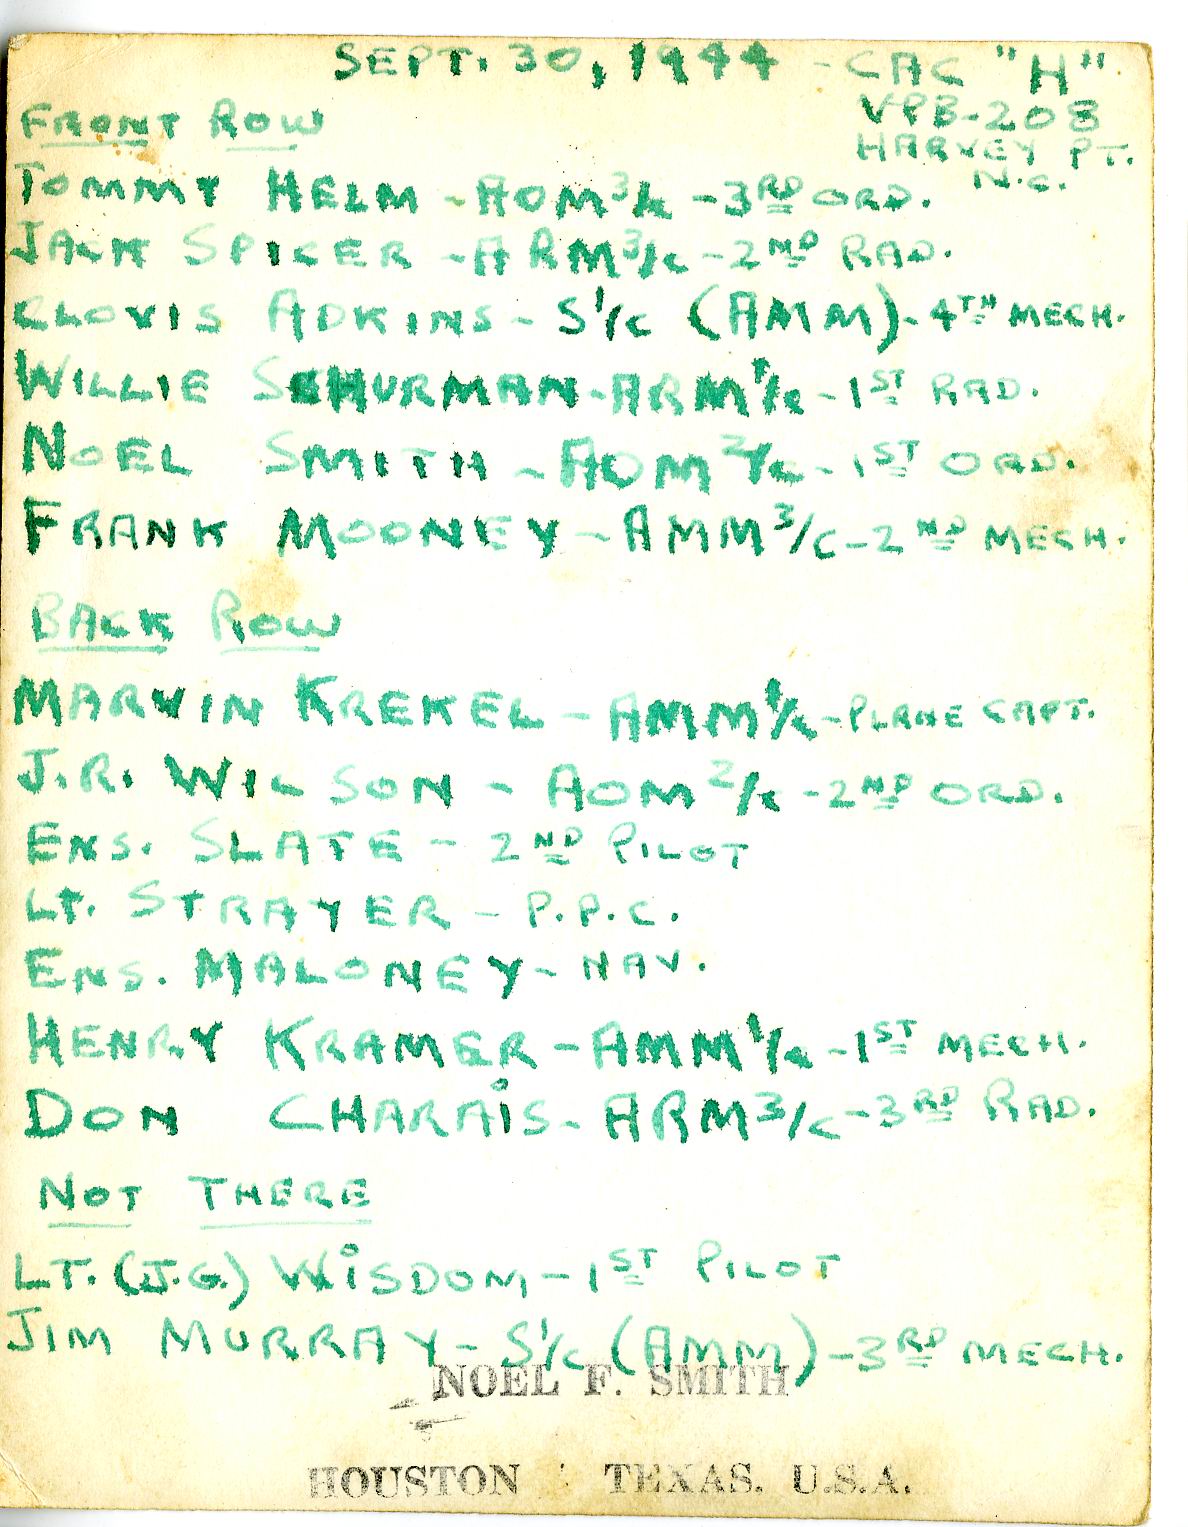 SEPT. 30, 1944 - CAC "H"
VPB-208
HARVEY PT.
N.C.
FRONT ROW
TOMMY HELM - AOM 3/c - 3RD ORD.
JACK SPICER - ARM 3/c - 2ND RAD.
CLOVIS ADKINS - S 1/c (AMM) - 4TH MECH.
WILLIE SCHURMAN - ARM 1/c - 1ST RAD.
NOEL SMITH - AOM 2/c - 1ST ORD.
FRANK MOONEY - AMM 3/c - 2ND MECH.
BACK ROW
MARVIN KREKEL - AMM 1/c - PLANE CAPT.
J.R. WILSON - AOM 2/c - 2ND ORD.
ENS. SLATE - 2ND PILOT
LT. STRAYER - P.P.C.
ENS. MALONEY - NAV.
HENRY KRAMER - AMM 1/c - 1ST MECH.
DON CHARAIS - ARM 3/c - 3RD RAD.
NOT THERE
LT. (J.G.) WISDOM - 1ST PILOT
JIM MURRAY - S 1/c (AMM) - 3RD MECH.
NOEL F. SMITH
HOUSTON TEXAS. U.S.A.